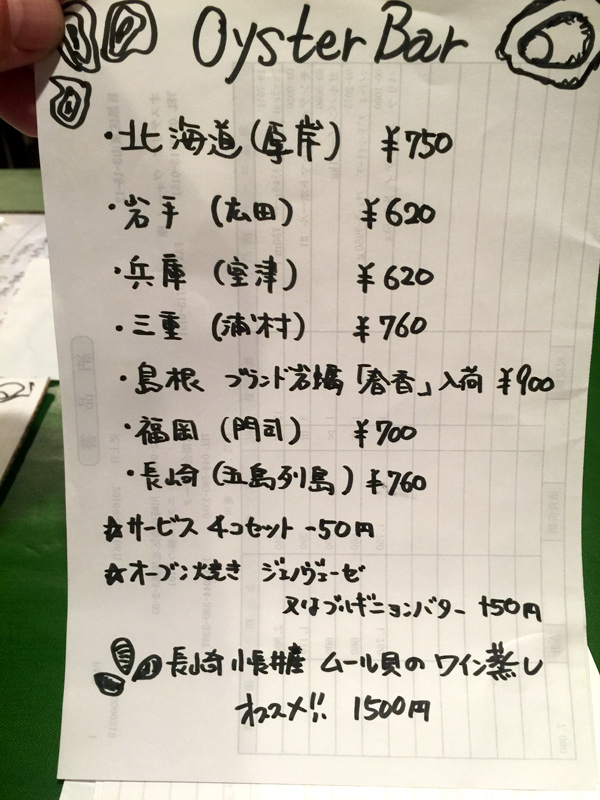 Oyster Bar
・北海道 (厚岸) ¥750
・岩手 (広田) ¥620
・兵庫 (室津) ¥620
・三重 (浦村) ¥760
・島根 ブランド岩蠣「春香」入荷 ¥900
・福岡 (門司) ¥700
・長崎 (五島列島) ¥760
☆サービス 4コセット -50円
☆オーブン焼き ジェノヴェーゼ
又はブルギニョンバター +50円
長崎小長井産 ムール貝の ワイン蒸し
オススメ!! 1500円